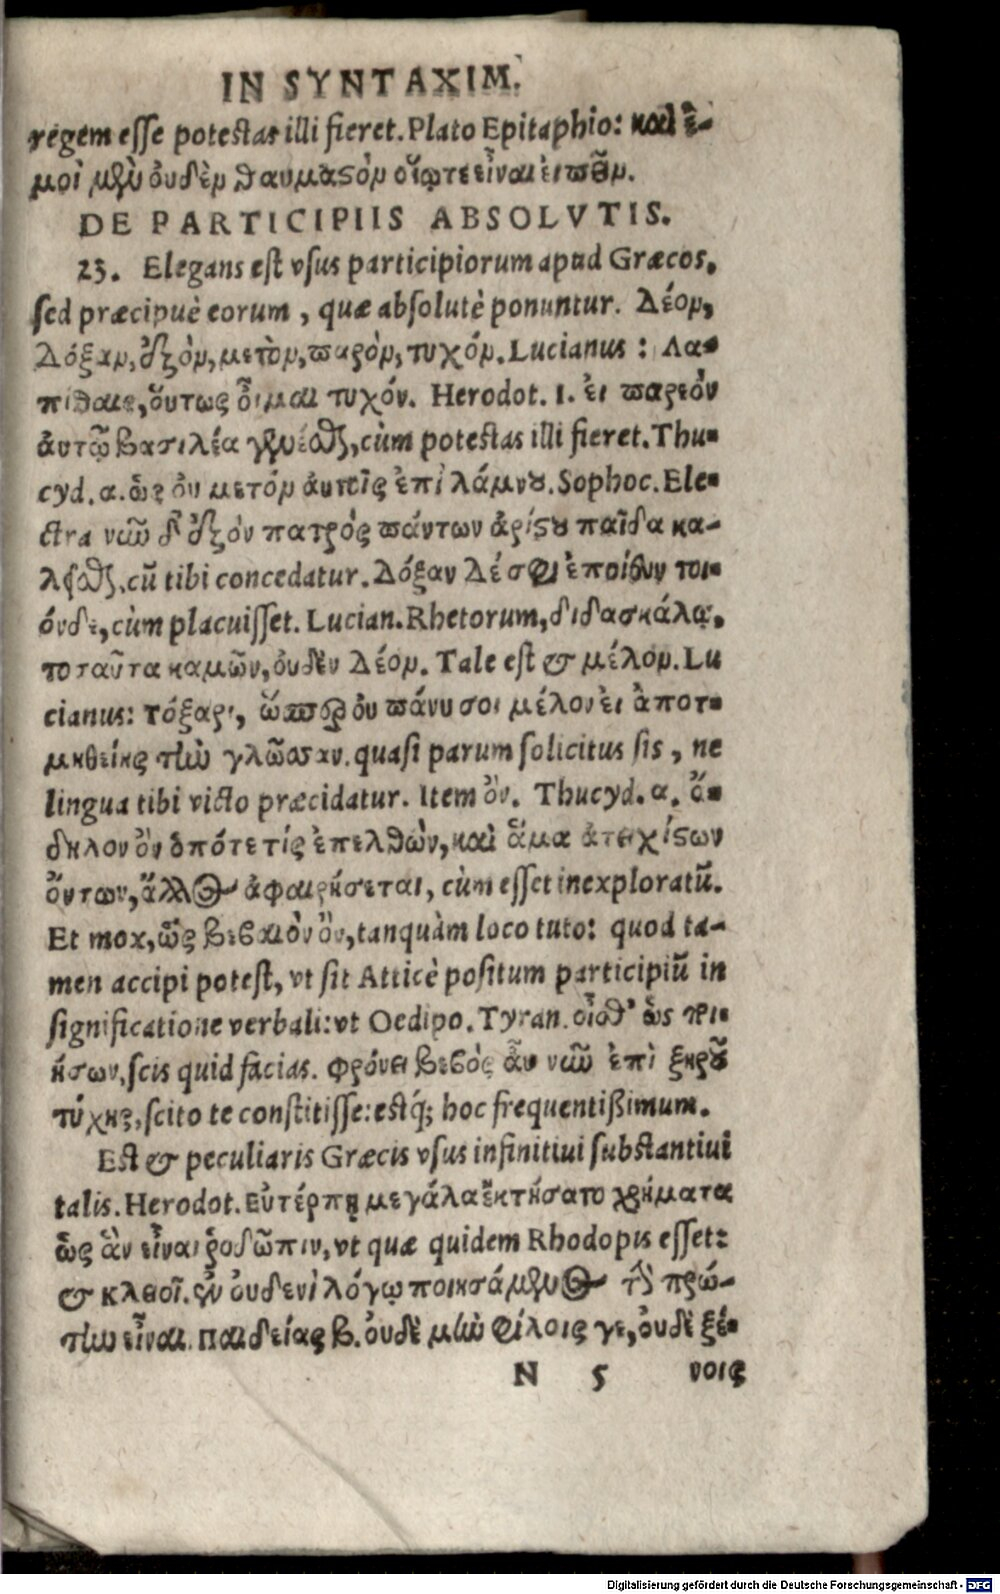 IN SYNTAXIM.
regem esse potestas illi fieret. Plato Epitaphio: καὶ ἐ-
μοὶ μὲν οὐδὲν θαυμαστὸν οἵῳτε εἶναι εἰπεῖν.
DE PARTICIPIIS ABSOLVTIS.
23. Elegans est vsus participiorum apud Græcos,
sed præcipuè eorum, quæ absolutè ponuntur. Δέον,
Δόξαν, ἐξὸν, μετὸν, παρὸν, τυχόν. Lucianus: Λα-
πίθαις, οὕτως οἶμαι τυχόν. Herodot. 1. εἰ παρεὸν
ἀυτῷ βασιλέα γενέσθαι, cùm potestas illi fieret. Thu-
cyd. α. ὡς οὐ μετὸν ἀυτοῖς ἐπιλάμνου. Sophoc. Ele-
ctra νῶν δ' ἐξὸν πατρὸς πάντων ἀρίστου παῖδα κα-
λεῖσθαι, cũ tibi concedatur. Δόξαν Δέ σφι ἐποίευν τοι-
όνδε, cùm placuisset. Lucian. Rhetorum, διδασκάλῳ,
τοταῦτα καμῶν, οὐδὲν Δέον. Tale est & μέλον. Lu
cianus: τόξαρι, ὥσπερ οὐ πάνυ σοι μέλον εἰ ἀποτ-
μηθείης τὴν γλῶσσαν. quasi parum solicitus sis, ne
lingua tibi victo præcidatur. Item ὄν. Thucyd. α. ἄ-
δηλον ὂν ὁπότε τίς ἐπελθὼν, καὶ ἅμα ἀτειχίστων
ὄντων, ἄλλος ἀφαιρήσεται, cùm esset inexploratũ.
Et mox, ὡς βεβαιὸν ὄν, tanquàm loco tuto: quod ta-
men accipi potest, vt sit Atticè positum participiũ in
significatione verbali: vt Oedipo. Tyran. οἶσθ' ὡς ποι-
ήσων, scis quid facias. φρόνει βεβὸς ἂν νῶν ἐπὶ ξηροῦ
τύχης, scito te constitisse: estq́; hoc frequentißimum.
Est & peculiaris Græcis vsus infinitiui substantiui
talis. Herodot. Εὐτέρπῃ μεγάλα ἐκτήσατο χρήματα
ὡς ἂν εἶναι ῥοδῶπιν, vt quæ quidem Rhodopis esset:
& κλειοῖ. ἐν οὐδενὶ λόγῳ ποιησάμενος τὴν πρώ-
την εἶναι. Παιδείας β. οὐδὲ μὴν φίλοις γε, οὐδὲ ξέ-
N 5 νοις
Digitalisierung gefördert durch die Deutsche Forschungsgemeinschaft - DFG